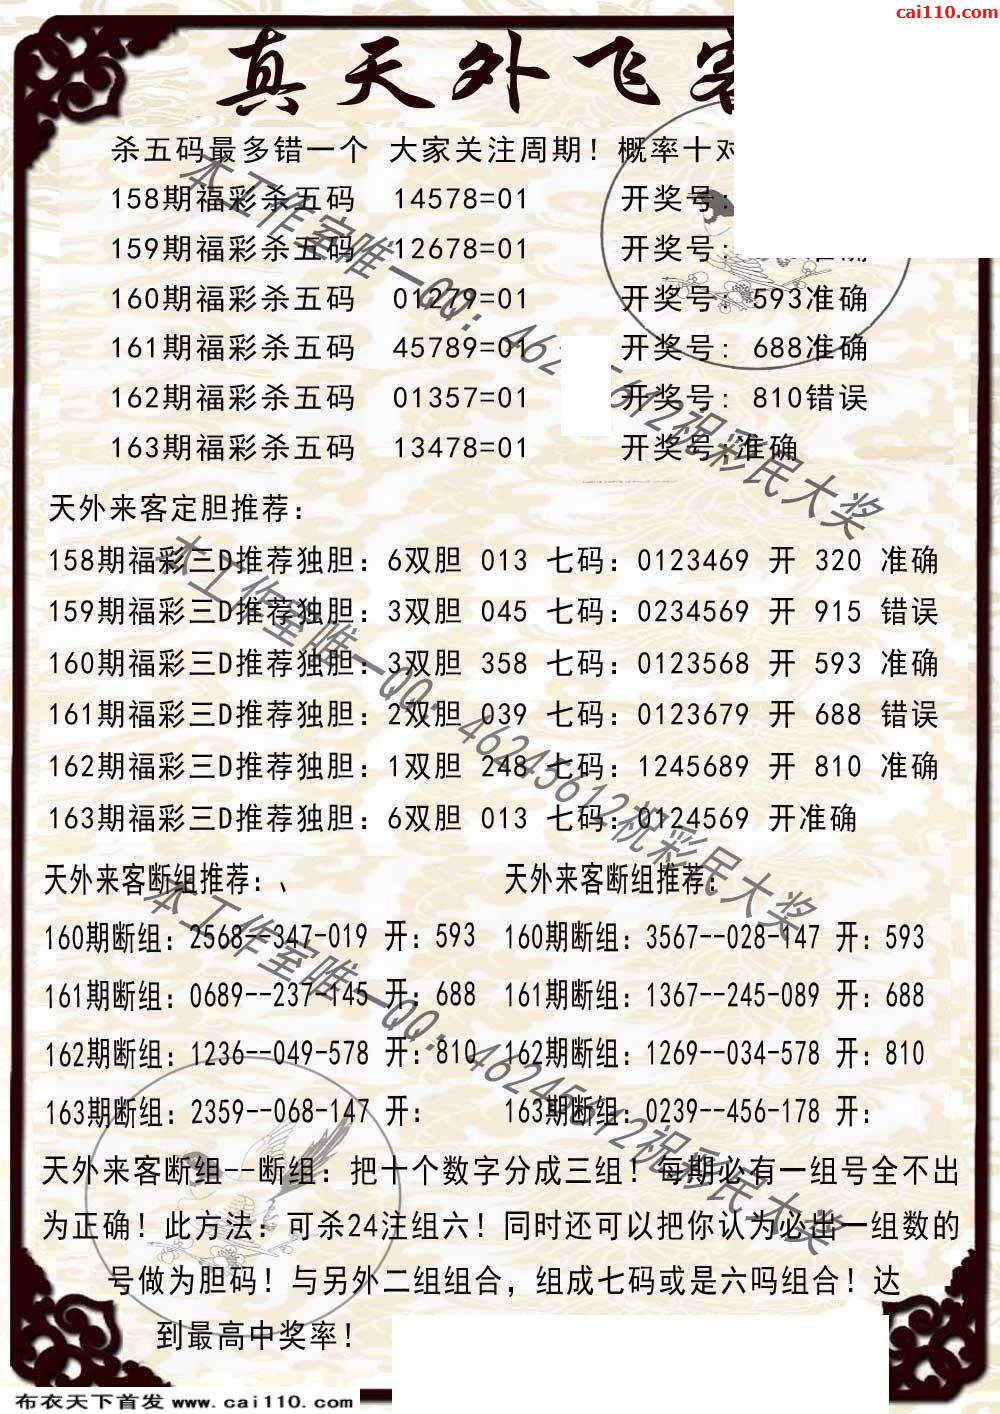 cai110.com
真天外飞客
杀五码最多错一个 大家关注周期！概率十对
158期福彩杀五码 14578=01 开奖号:
159期福彩杀五码 12678=01 开奖号: 准确
160期福彩杀五码 01279=01 开奖号: 593准确
161期福彩杀五码 45789=01 开奖号: 688准确
162期福彩杀五码 01357=01 开奖号: 810错误
163期福彩杀五码 13478=01 开奖号:准确
本工作室唯一QQ: 46245612祝彩民大奖
天外来客定胆推荐:
158期福彩三D推荐独胆: 6双胆 013 七码: 0123469 开 320 准确
159期福彩三D推荐独胆: 3双胆 045 七码: 0234569 开 915 错误
160期福彩三D推荐独胆: 3双胆 358 七码: 0123568 开 593 准确
161期福彩三D推荐独胆: 2双胆 039 七码: 0123679 开 688 错误
162期福彩三D推荐独胆: 1双胆 248 七码: 1245689 开 810 准确
163期福彩三D推荐独胆: 6双胆 013 七码: 0124569 开准确
本工作室唯一QQ: 46245612祝彩民大奖
天外来客断组推荐:、 天外来客断组推荐:
160期断组: 2568--347-019 开: 593 160期断组: 3567--028-147 开: 593
161期断组: 0689--237-145 开: 688 161期断组: 1367--245-089 开: 688
162期断组: 1236--049-578 开: 810 162期断组: 1269--034-578 开: 810
163期断组: 2359--068-147 开: 163期断组: 0239--456-178 开:
本工作室唯一QQ: 46245612祝彩民大奖
天外来客断组--断组: 把十个数字分成三组！每期必有一组号全不出
为正确！此方法: 可杀24注组六！同时还可以把你认为必出一组数的
号做为胆码！与另外二组组合，组成七码或是六吗组合！达
到最高中奖率！
布衣天下首发 www.cai110.com